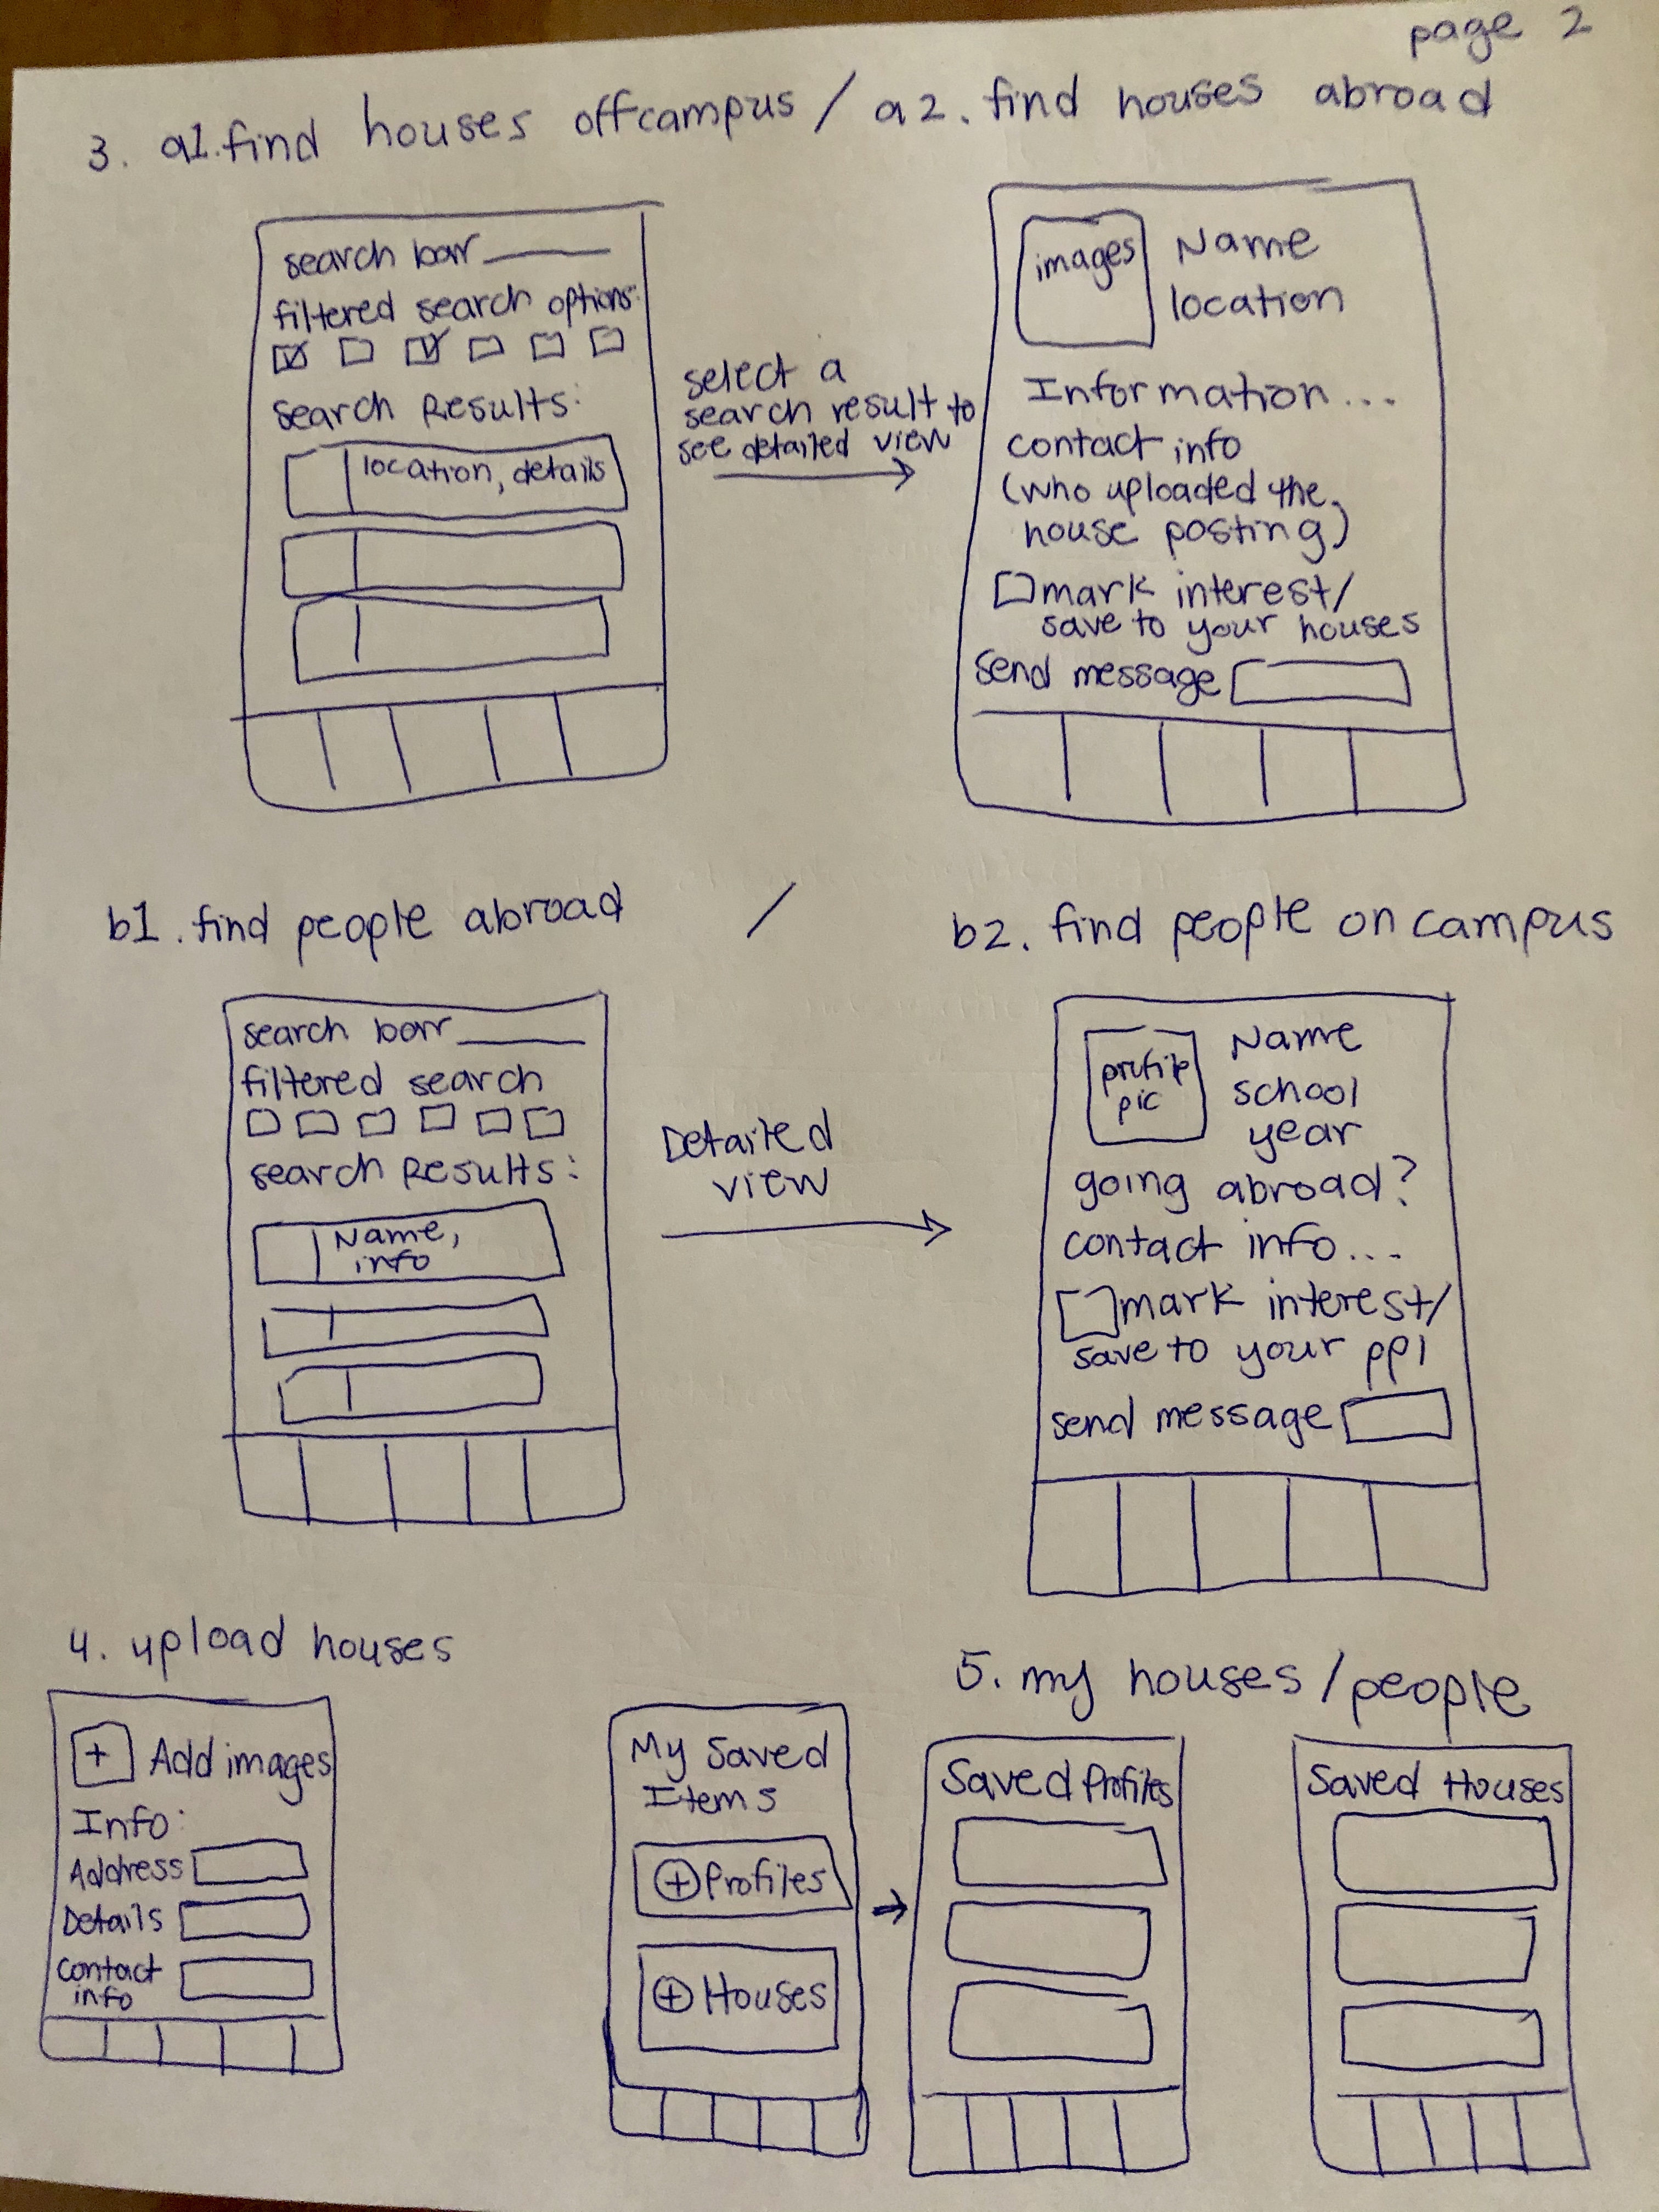 page 2
3. a1. find houses offcampus / a2. find houses abroad
search bar
filtered search options:
Search Results:
location, details
select a
search result to
see detailed view
images
Name
location
Information...
contact info
(who uploaded the
house posting)
mark interest/
save to your houses
Send message
b1. find people abroad /
b2. find people on campus
search bar
filtered search
search Results:
Name,
info
Detailed
view
profile
pic
Name
school
year
going abroad?
contact info...
mark interest/
save to your ppl
send message
4. upload houses
+ Add images
Info:
Address
Details
contact
info
5. my houses/people
My Saved
Items
+ Profiles
+ Houses
Saved Profiles
Saved Houses